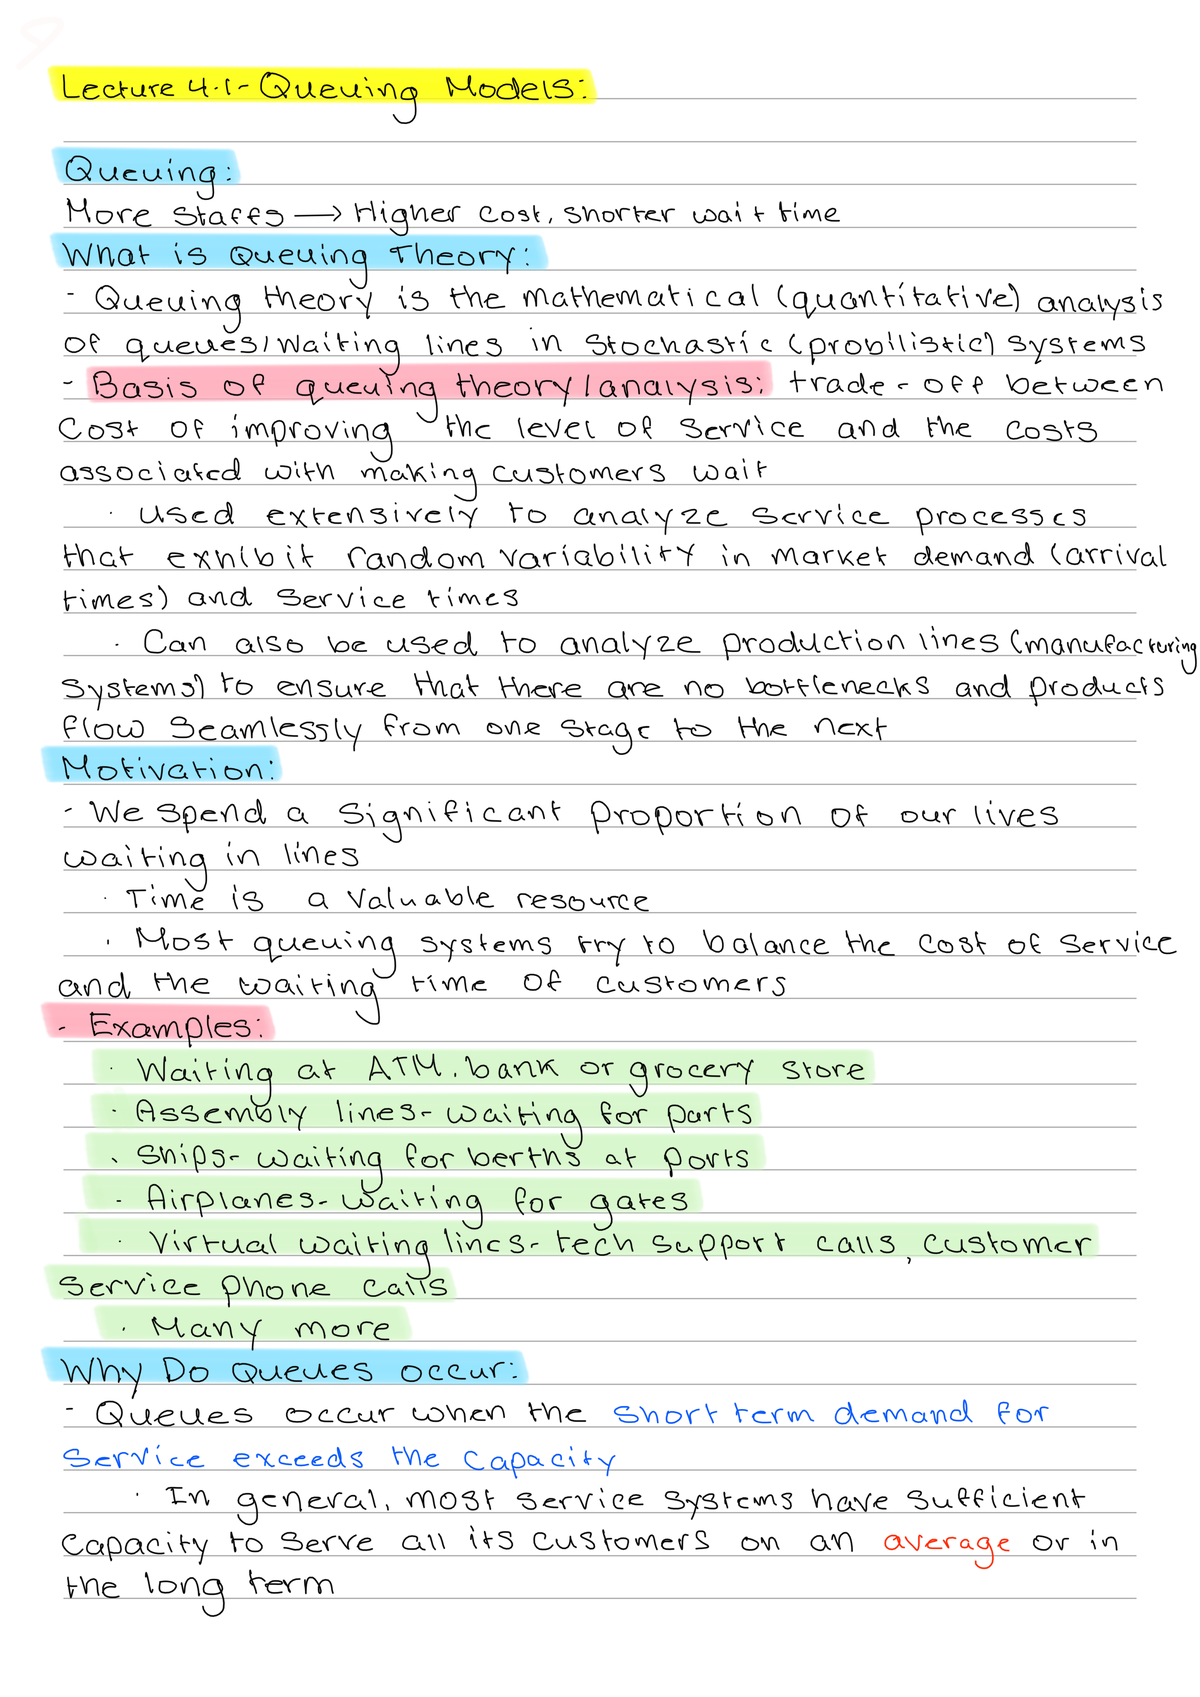 Lecture 4.1- Queuing Models:
Queuing:
More Staffs → Higher cost, shorter wait time
What is Queuing Theory:
- Queuing theory is the mathematical (quantitative) analysis
of queues/waiting lines in Stochastic (probilistic) systems
- Basis of queuing theory/analysis: trade-off between
Cost of improving the level of Service and the costs
associated with making customers wait
· used extensively to analyze service processes
that exhibit random variability in market demand (arrival
times) and service times
· Can also be used to analyze production lines (manufacturing
systems) to ensure that there are no bottlenecks and products
flow Seamlessly from one stage to the next
Motivation:
- We spend a significant proportion of our lives
waiting in lines
· Time is a valuable resource
· Most queuing systems try to balance the cost of service
and the waiting time of customers
- Examples:
· Waiting at ATM, bank or grocery store
· Assembly lines- waiting for parts
· Ships- waiting for berths at ports
· Airplanes- waiting for gates
· Virtual waiting lines- tech support calls, customer
service phone calls
· Many more
Why Do Queues occur:
- Queues occur when the short term demand for
service exceeds the capacity
· In general, most service systems have sufficient
capacity to serve all its customers on an average or in
the long term